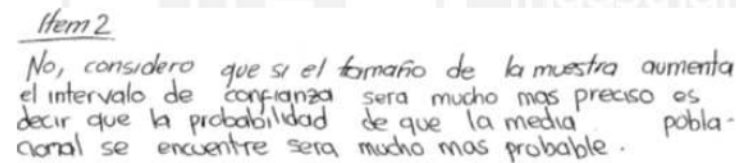 Item 2
No, considero que si el tamaño de la muestra aumenta
el intervalo de confianza sera mucho mas preciso es
decir que la probabilidad de que la media pobla-
cional se encuentre sera mucho mas probable.